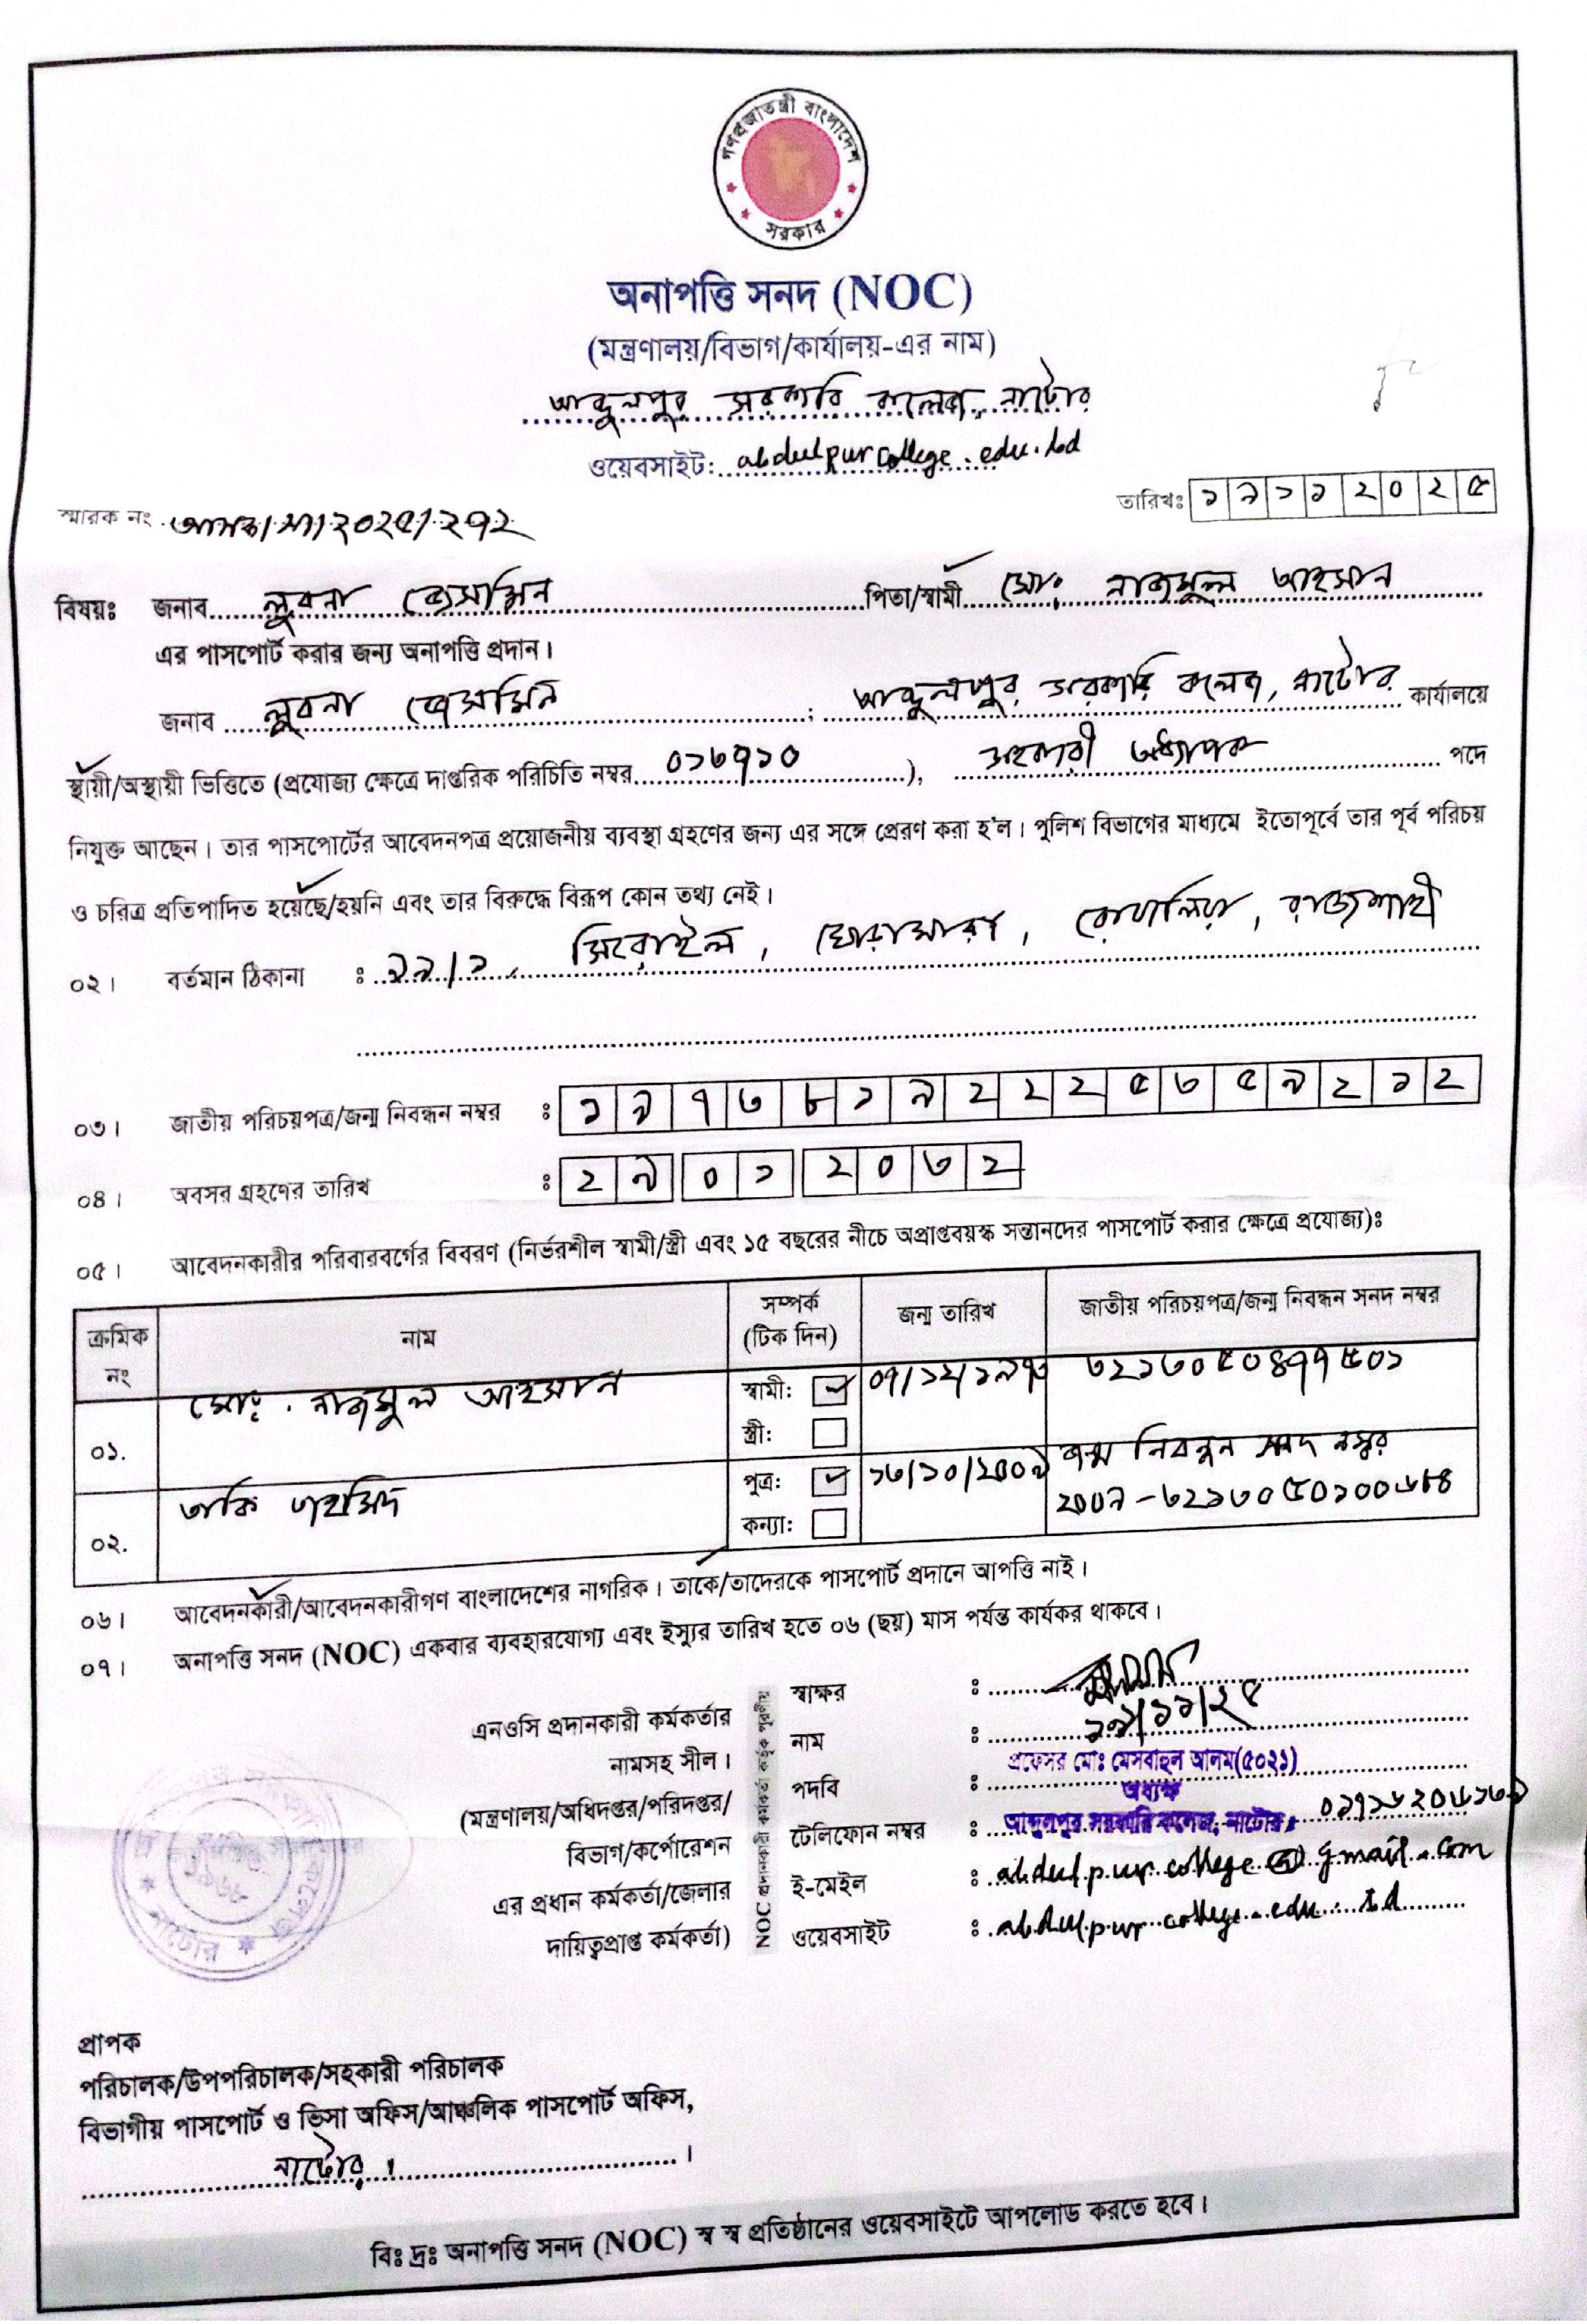 গণপ্রজাতন্ত্রী বাংলাদেশ
সরকার
অনাপত্তি সনদ (NOC)
(মন্ত্রণালয়/বিভাগ/কার্যালয়-এর নাম)
আব্দুলপুর সরকারি কলেজ, নাটোর
ওয়েবসাইট: abdulpurcollege.edu.bd
তারিখঃ ১৯১১২০২৫
স্মারক নং আসক/না/২০২৫/২৭২
বিষয়ঃ জনাব লুবনা জেসমিন পিতা/স্বামী মোঃ নাজমুল আহসান
এর পাসপোর্ট করার জন্য অনাপত্তি প্রদান।
জনাব লুবনা জেসমিন ; আব্দুলপুর সরকারি কলেজ, নাটোর কার্যালয়ে
স্থায়ী/অস্থায়ী ভিত্তিতে (প্রযোজ্য ক্ষেত্রে দাপ্তরিক পরিচিতি নম্বর ০১৬৭১০), সহকারী অধ্যাপক পদে
নিযুক্ত আছেন। তার পাসপোর্টের আবেদনপত্র প্রয়োজনীয় ব্যবস্থা গ্রহণের জন্য এর সঙ্গে প্রেরণ করা হ'ল। পুলিশ বিভাগের মাধ্যমে ইতোপূর্বে তার পূর্ব পরিচয়
ও চরিত্র প্রতিপাদিত হয়েছে/হয়নি এবং তার বিরুদ্ধে বিরূপ কোন তথ্য নেই।
০২। বর্তমান ঠিকানা ঃ ৯৯/১, সিরোইল, ঘোড়ামারা, বোয়ালিয়া, রাজশাহী
০৩। জাতীয় পরিচয়পত্র/জন্ম নিবন্ধন নম্বর ঃ ১৯৭৩৮১৯২২২৫৩৫৯২১২
০৪। অবসর গ্রহণের তারিখ ঃ ২৯ ০১ ২০৩২
০৫। আবেদনকারীর পরিবারবর্গের বিবরণ (নির্ভরশীল স্বামী/স্ত্রী এবং ১৫ বছরের নীচে অপ্রাপ্তবয়স্ক সন্তানদের পাসপোর্ট করার ক্ষেত্রে প্রযোজ্য)ঃ
ক্রমিক নং নাম সম্পর্ক (টিক দিন) জন্ম তারিখ জাতীয় পরিচয়পত্র/জন্ম নিবন্ধন সনদ নম্বর
০১. মোঃ নাজমুল আহসান স্বামী: ০৭/১২/১৯৭৩ ৩২১৩০৫০৪৭৭৫০১
স্ত্রী:
০২. তাকি তাহমিদ পুত্র: ১৩/১০/২০০৯ জন্ম নিবন্ধন সনদ নম্বর
কন্যা: ২০০৯-৩২১৩০৫০১০০৬৮৪
০৬। আবেদনকারী/আবেদনকারীগণ বাংলাদেশের নাগরিক। তাকে/তাদেরকে পাসপোর্ট প্রদানে আপত্তি নাই।
০৭। অনাপত্তি সনদ (NOC) একবার ব্যবহারযোগ্য এবং ইস্যুর তারিখ হতে ০৬ (ছয়) মাস পর্যন্ত কার্যকর থাকবে।
এনওসি প্রদানকারী কর্মকর্তার
নামসহ সীল।
(মন্ত্রণালয়/অধিদপ্তর/পরিদপ্তর/
বিভাগ/কর্পোরেশন
এর প্রধান কর্মকর্তা/জেলার
দায়িত্বপ্রাপ্ত কর্মকর্তা)
NOC প্রদানকারী কর্মকর্তা কর্তৃক পূরণীয়
স্বাক্ষর ঃ
১৯/১১/২৫
নাম ঃ প্রফেসর মোঃ মেসবাহুল আলম(৫০২১)
পদবি ঃ অধ্যক্ষ
আব্দুলপুর সরকারি কলেজ, নাটোর।
টেলিফোন নম্বর ঃ ০১৭১৬২০৬১৩৯
ই-মেইল ঃ abdulpurcollege@gmail.com
ওয়েবসাইট ঃ abdulpurcollege.edu.bd
প্রাপক
পরিচালক/উপপরিচালক/সহকারী পরিচালক
বিভাগীয় পাসপোর্ট ও ভিসা অফিস/আঞ্চলিক পাসপোর্ট অফিস,
নাটোর।
বিঃ দ্রঃ অনাপত্তি সনদ (NOC) স্ব স্ব প্রতিষ্ঠানের ওয়েবসাইটে আপলোড করতে হবে।